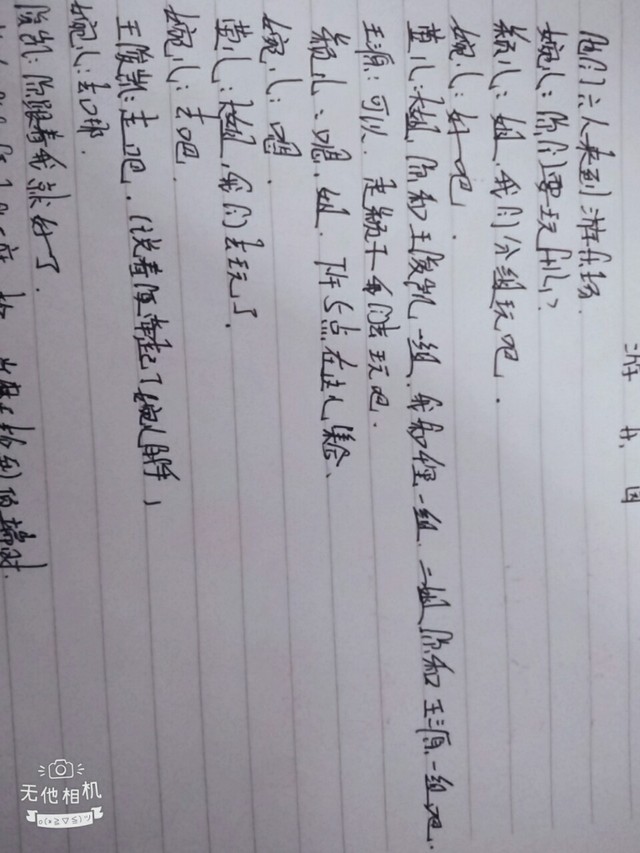 游乐园
他们六人来到游乐场.
婉儿：你们要玩什么?
颖儿：姐,我们分组玩吧.
婉儿：好吧.
萱儿：大姐,你和王俊凯一组.我和千玺一组.二姐你和王源一组吧.
王源：可以.走颖儿我们去玩吧.
颖儿：嗯,姐.下午5点在这儿集合.
婉儿：嗯.
萱儿：大姐,我们去玩了.
婉儿：去吧.
王俊凯：走吧.(说着便牵起了婉儿的手)
婉儿：去哪.
俊凯：你跟着我就好了.
无他相机